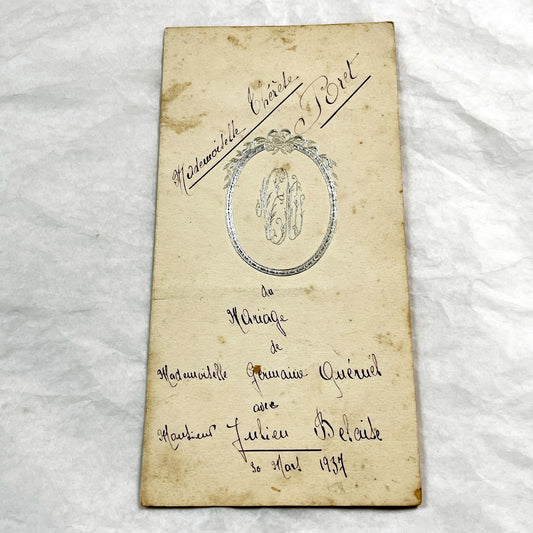 Mademoiselle Thérèse Poret
du
Mariage
de
Mademoiselle Germaine Quéruel
avec
Monsieur Julien Belaise
30 Mars 1937